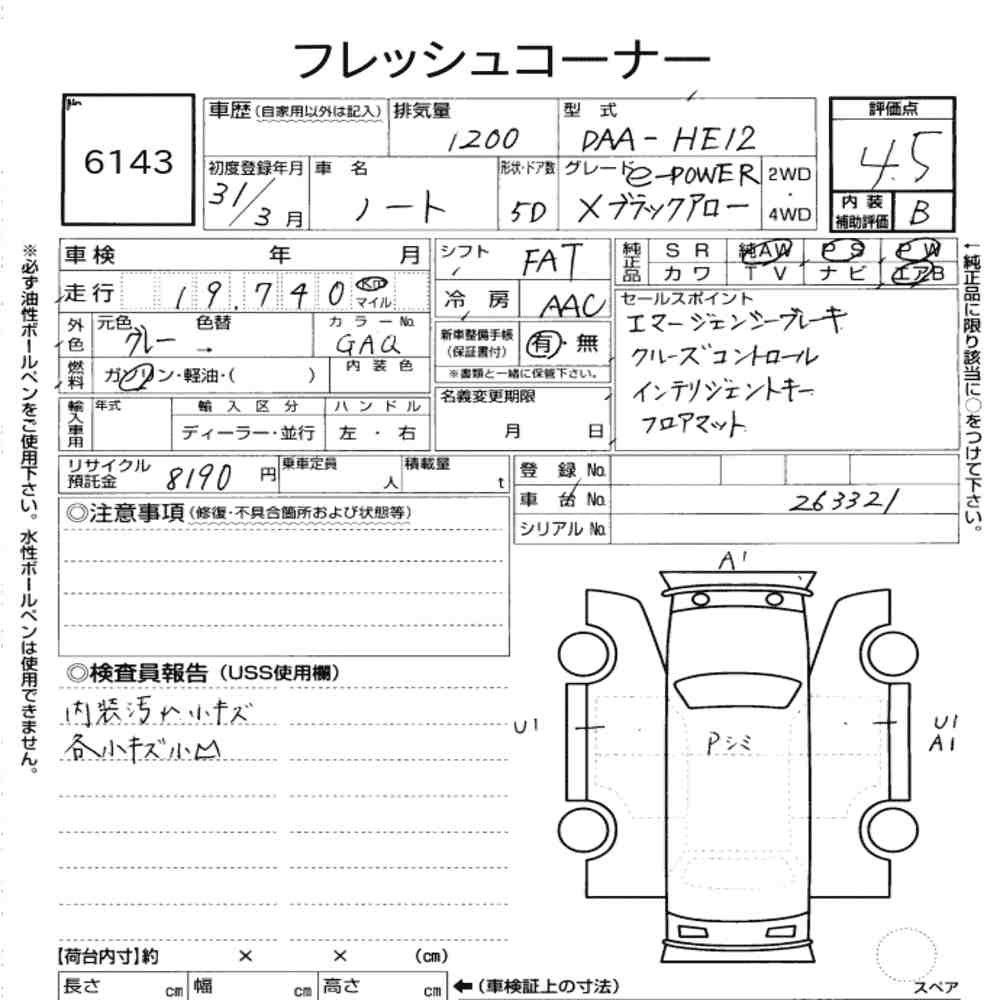 フレッシュコーナー
6143
車歴(自家用以外は記入)
排気量
1200
型 式
DAA-HE12
評価点
4.5
内装
補助評価
B
初度登録年月
31/3月
車 名
ノート
形状・ドア数
5D
グレード
e-POWER
Xブラックアロー
2WD
・
4WD
車検 年 月
走行 19.740 Km
マイル
外色
元色 色替
グレー →
カラーNo.
GAQ
燃料
ガソリン・軽油・( )
内装色
輸入車用
年式
輸入区分
ディーラー・並行
ハンドル
左・右
シフト
FAT
冷 房
AAC
新車整備手帳
(保証書付)
有・無
※書類と一緒に保管下さい。
名義変更期限
月 日
純正品
SR 純AW PS PW
カワ TV ナビ エアB
セールスポイント
エマージェンジーブレーキ
クルーズコントロール
インテリジェントキー
フロアマット
リサイクル
預託金
8190 円
乗車定員
人
積載量
t
登 録 No.
車 台 No.
263321
シリアル No.
◎注意事項(修復・不具合箇所および状態等)
◎検査員報告(USS使用欄)
内装汚れ小キズ
各小キズ小凹
A1
U1
Pシミ
U1
A1
【荷台内寸】約 × × (cm)
長さ cm 幅 cm 高さ cm
←(車検証上の寸法)
スペア
※必ず油性ボールペンをご使用下さい。水性ボールペンは使用できません。
←純正品に限り該当に○をつけて下さい。